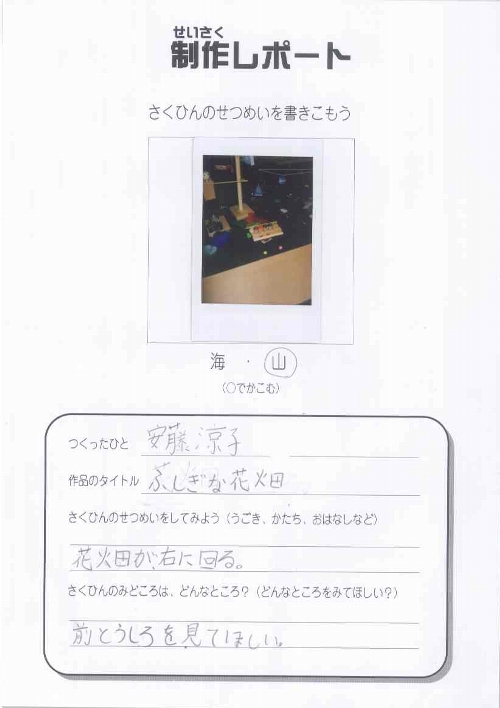 せいさく
制作レポート
さくひんのせつめいを書きこもう
海 ・ 山
(○でかこむ)
つくったひと 安藤涼子
作品のタイトル ふしぎな花火田
さくひんのせつめいをしてみよう (うごき、かたち、おはなしなど)
花火田が右に回る。
さくひんのみどころは、どんなところ? (どんなところをみてほしい?)
前とうしろを見てほしい。